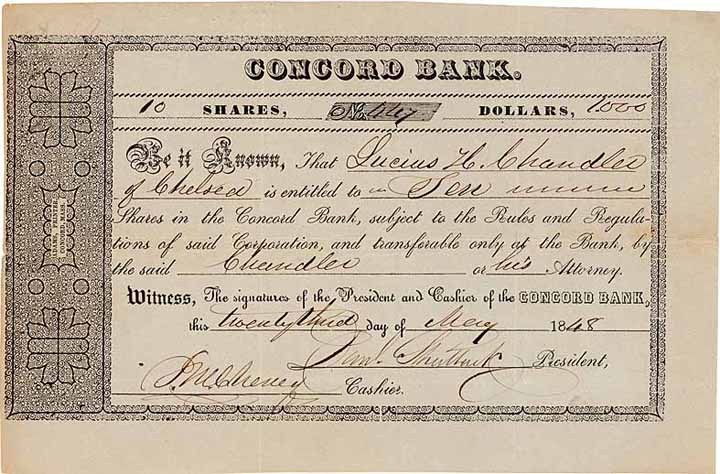 CONCORD BANK.
10 SHARES, No. DOLLARS, 1000
Be it Known, That Lucius H. Chandler
of Chelsea is entitled to Ten
Shares in the Concord Bank, subject to the Rules and Regula-
tions of said Corporation, and transferable only at the Bank, by
the said Chandler or his Attorney.
Witness, The signatures of the President and Cashier of the CONCORD BANK,
this twenty third day of May 1848
Danl. Shattuck President,
J. M. Cheney Cashier.
PRINTER,
CONCORD, MASS.